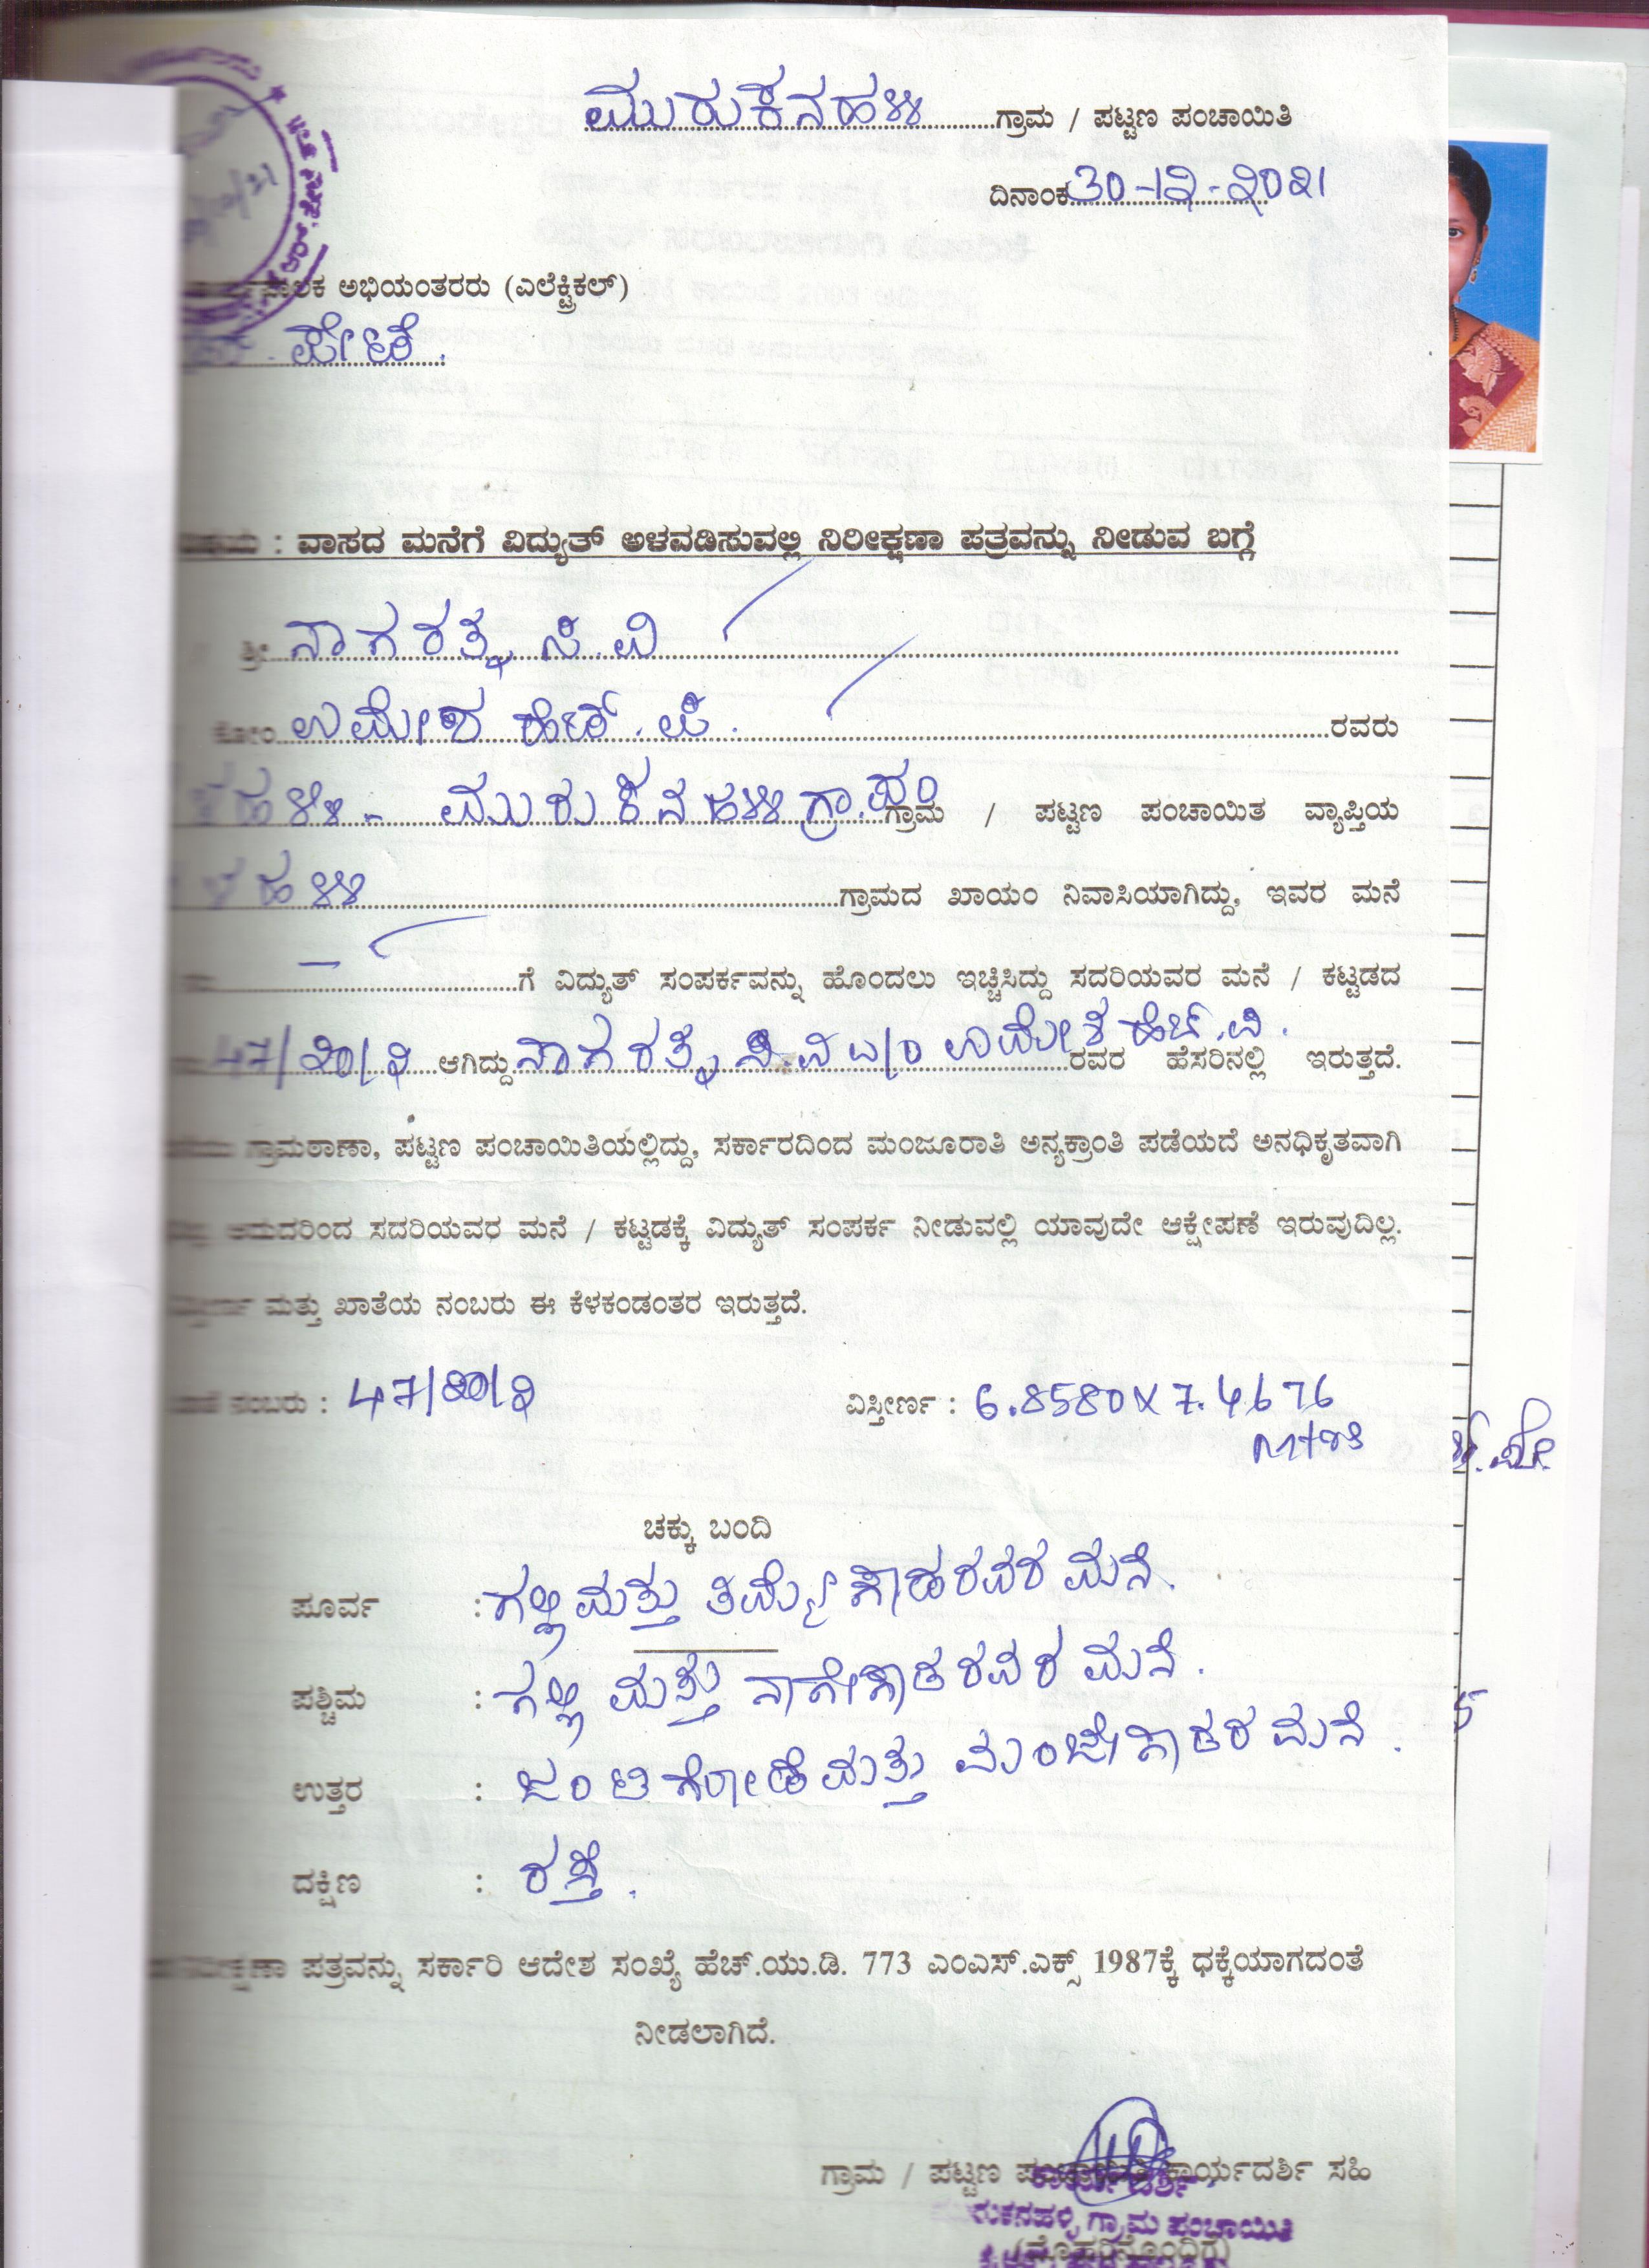 ಮುರುಕನಹಳ್ಳಿ ಗ್ರಾಮ / ಪಟ್ಟಣ ಪಂಚಾಯಿತಿ
ದಿನಾಂಕ 30-12-2021
ಅಭಿಯಂತರರು (ಎಲೆಕ್ಟ್ರಿಕಲ್)
ಪೇಟೆ.
: ವಾಸದ ಮನೆಗೆ ವಿದ್ಯುತ್ ಅಳವಡಿಸುವಲ್ಲಿ ನಿರೀಕ್ಷಣಾ ಪತ್ರವನ್ನು ನೀಡುವ ಬಗ್ಗೆ
ಶ್ರೀ ನಾಗರತ್ನ ಸಿ.ವಿ
ಕೋಂ ಉಮೇಶ ಹೆಚ್.ಪಿ. ರವರು
ಮುರುಕನಹಳ್ಳಿ ಗ್ರಾ.ಪಂ ಗ್ರಾಮ / ಪಟ್ಟಣ ಪಂಚಾಯಿತ ವ್ಯಾಪ್ತಿಯ
ಗ್ರಾಮದ ಖಾಯಂ ನಿವಾಸಿಯಾಗಿದ್ದು, ಇವರ ಮನೆ
ಗೆ ವಿದ್ಯುತ್ ಸಂಪರ್ಕವನ್ನು ಹೊಂದಲು ಇಚ್ಚಿಸಿದ್ದು ಸದರಿಯವರ ಮನೆ / ಕಟ್ಟಡದ
47/20/2 ಆಗಿದ್ದು ನಾಗರತ್ನ ಸಿ.ವಿ ಉಮೇಶ ಹೆಚ್.ಪಿ. ರವರ ಹೆಸರಿನಲ್ಲಿ ಇರುತ್ತದೆ.
ಗ್ರಾಮಠಾಣಾ, ಪಟ್ಟಣ ಪಂಚಾಯಿತಿಯಲ್ಲಿದ್ದು, ಸರ್ಕಾರದಿಂದ ಮಂಜೂರಾತಿ ಅನ್ಯಕ್ರಾಂತಿ ಪಡೆಯದೆ ಅನಧಿಕೃತವಾಗಿ
ಆದುದರಿಂದ ಸದರಿಯವರ ಮನೆ / ಕಟ್ಟಡಕ್ಕೆ ವಿದ್ಯುತ್ ಸಂಪರ್ಕ ನೀಡುವಲ್ಲಿ ಯಾವುದೇ ಆಕ್ಷೇಪಣೆ ಇರುವುದಿಲ್ಲ.
ಮತ್ತು ಖಾತೆಯ ನಂಬರು ಈ ಕೆಳಕಂಡಂತರ ಇರುತ್ತದೆ.
ನಂಬರು : 47/20/2 ವಿಸ್ತೀರ್ಣ : 6.8580 X 7.4676
Mtrs
ಚಕ್ಕು ಬಂದಿ
ಪೂರ್ವ : ಗಲ್ಲಿ ಮತ್ತು ತಿಮ್ಮೇಗೌಡರವರ ಮನೆ.
ಪಶ್ಚಿಮ : ಗಲ್ಲಿ ಮತ್ತು ನಾಗೇಗೌಡರವರ ಮನೆ.
ಉತ್ತರ : ಜಂಟಿ ಗೋಡೆ ಮತ್ತು ಮಂಜೇಗೌಡರ ಮನೆ.
ದಕ್ಷಿಣ : ರಸ್ತೆ.
ಪತ್ರವನ್ನು ಸರ್ಕಾರಿ ಆದೇಶ ಸಂಖ್ಯೆ ಹೆಚ್.ಯು.ಡಿ. 773 ಎಂಎಸ್.ಎಕ್ಸ್ 1987ಕ್ಕೆ ಧಕ್ಕೆಯಾಗದಂತೆ
ನೀಡಲಾಗಿದೆ.
ಗ್ರಾಮ / ಪಟ್ಟಣ ಪಂಚಾಯಿತಿ ಕಾರ್ಯದರ್ಶಿ ಸಹಿ
ಕಾರ್ಯದರ್ಶಿ
ಗ್ರಾಮ ಪಂಚಾಯಿತಿ
(ಮೊಹರಿನೊಂದಿಗೆ)